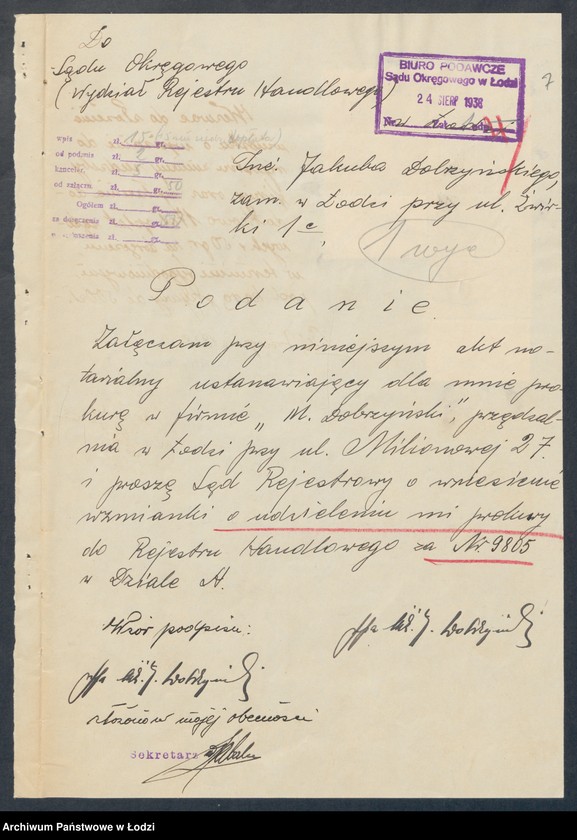 Do
Sądu Okręgowego
(Wydział Rejestru Handlowego)
BIURO PODAWCZE
Sądu Okręgowego w Łodzi
24 SIERP 1938
7
w Łodzi
wpis zł. gr.
od podania zł. gr.
kancelar. zł. gr.
od załącz. zł. gr. 50
Ogółem zł. gr.
za doręczenie zł. gr.
ogłoszenia zł. gr.
Inż. Jakuba Dobrzyńskiego,
zam. w Łodzi przy ul. Żwir-
ki 1 c,
Podanie
Załączam przy niniejszym akt no-
tarialny ustanawiający dla mnie pro-
kurę w firmie „M. Dobrzyński", przędzal-
nia w Łodzi przy ul. Milionowej 27.
i proszę Sąd Rejestrowy o wniesienie
wzmianki o udzieleniu mi prokury
do Rejestru Handlowego za Nr. 9805
w Dziale A.
Wzór podpisu:
ppa inż. J. Dobrzyński
ppa inż. J. Dobrzyński
złożono w mojej obecności
Sekretarz
Archiwum Państwowe w Łodzi